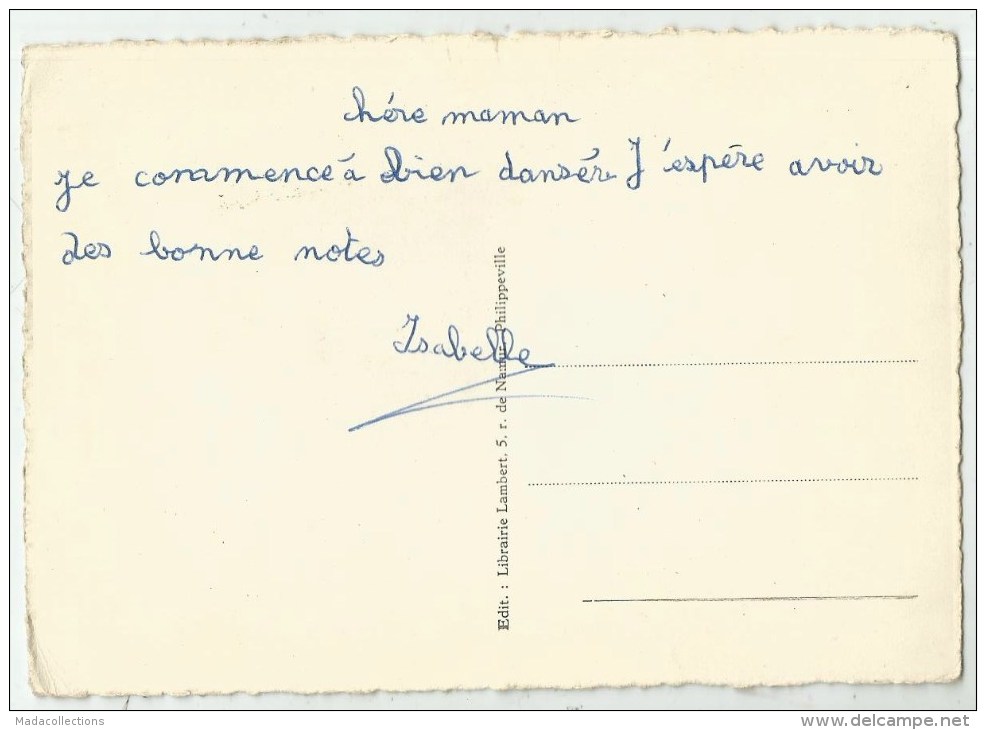 chére maman
je commence á bien dansér J'espére avoir
des bonne notes
Isabelle
Edit. : Librairie Lambert, 5, r. de Namur, Philippeville
Madacollections
www.delcampe.net